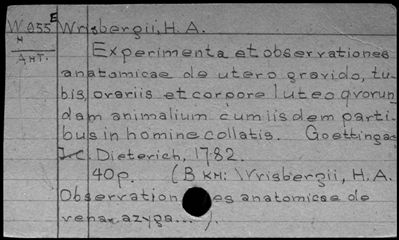 W 855 E Wrisbergii, H. A.
H
АНТ.
Experimenta et observationes
anatomicae de utero gravido, tu-
bis, ovariis et corpore luteo qvorun-
dam animalium cum iisdem parti-
bus in homine collatis. Goettingae
I. C. Dieterich, 1782.
40 p. (В кн: Wrisbergii, H. A.
Observation es anatomicae de
vena azyga...).